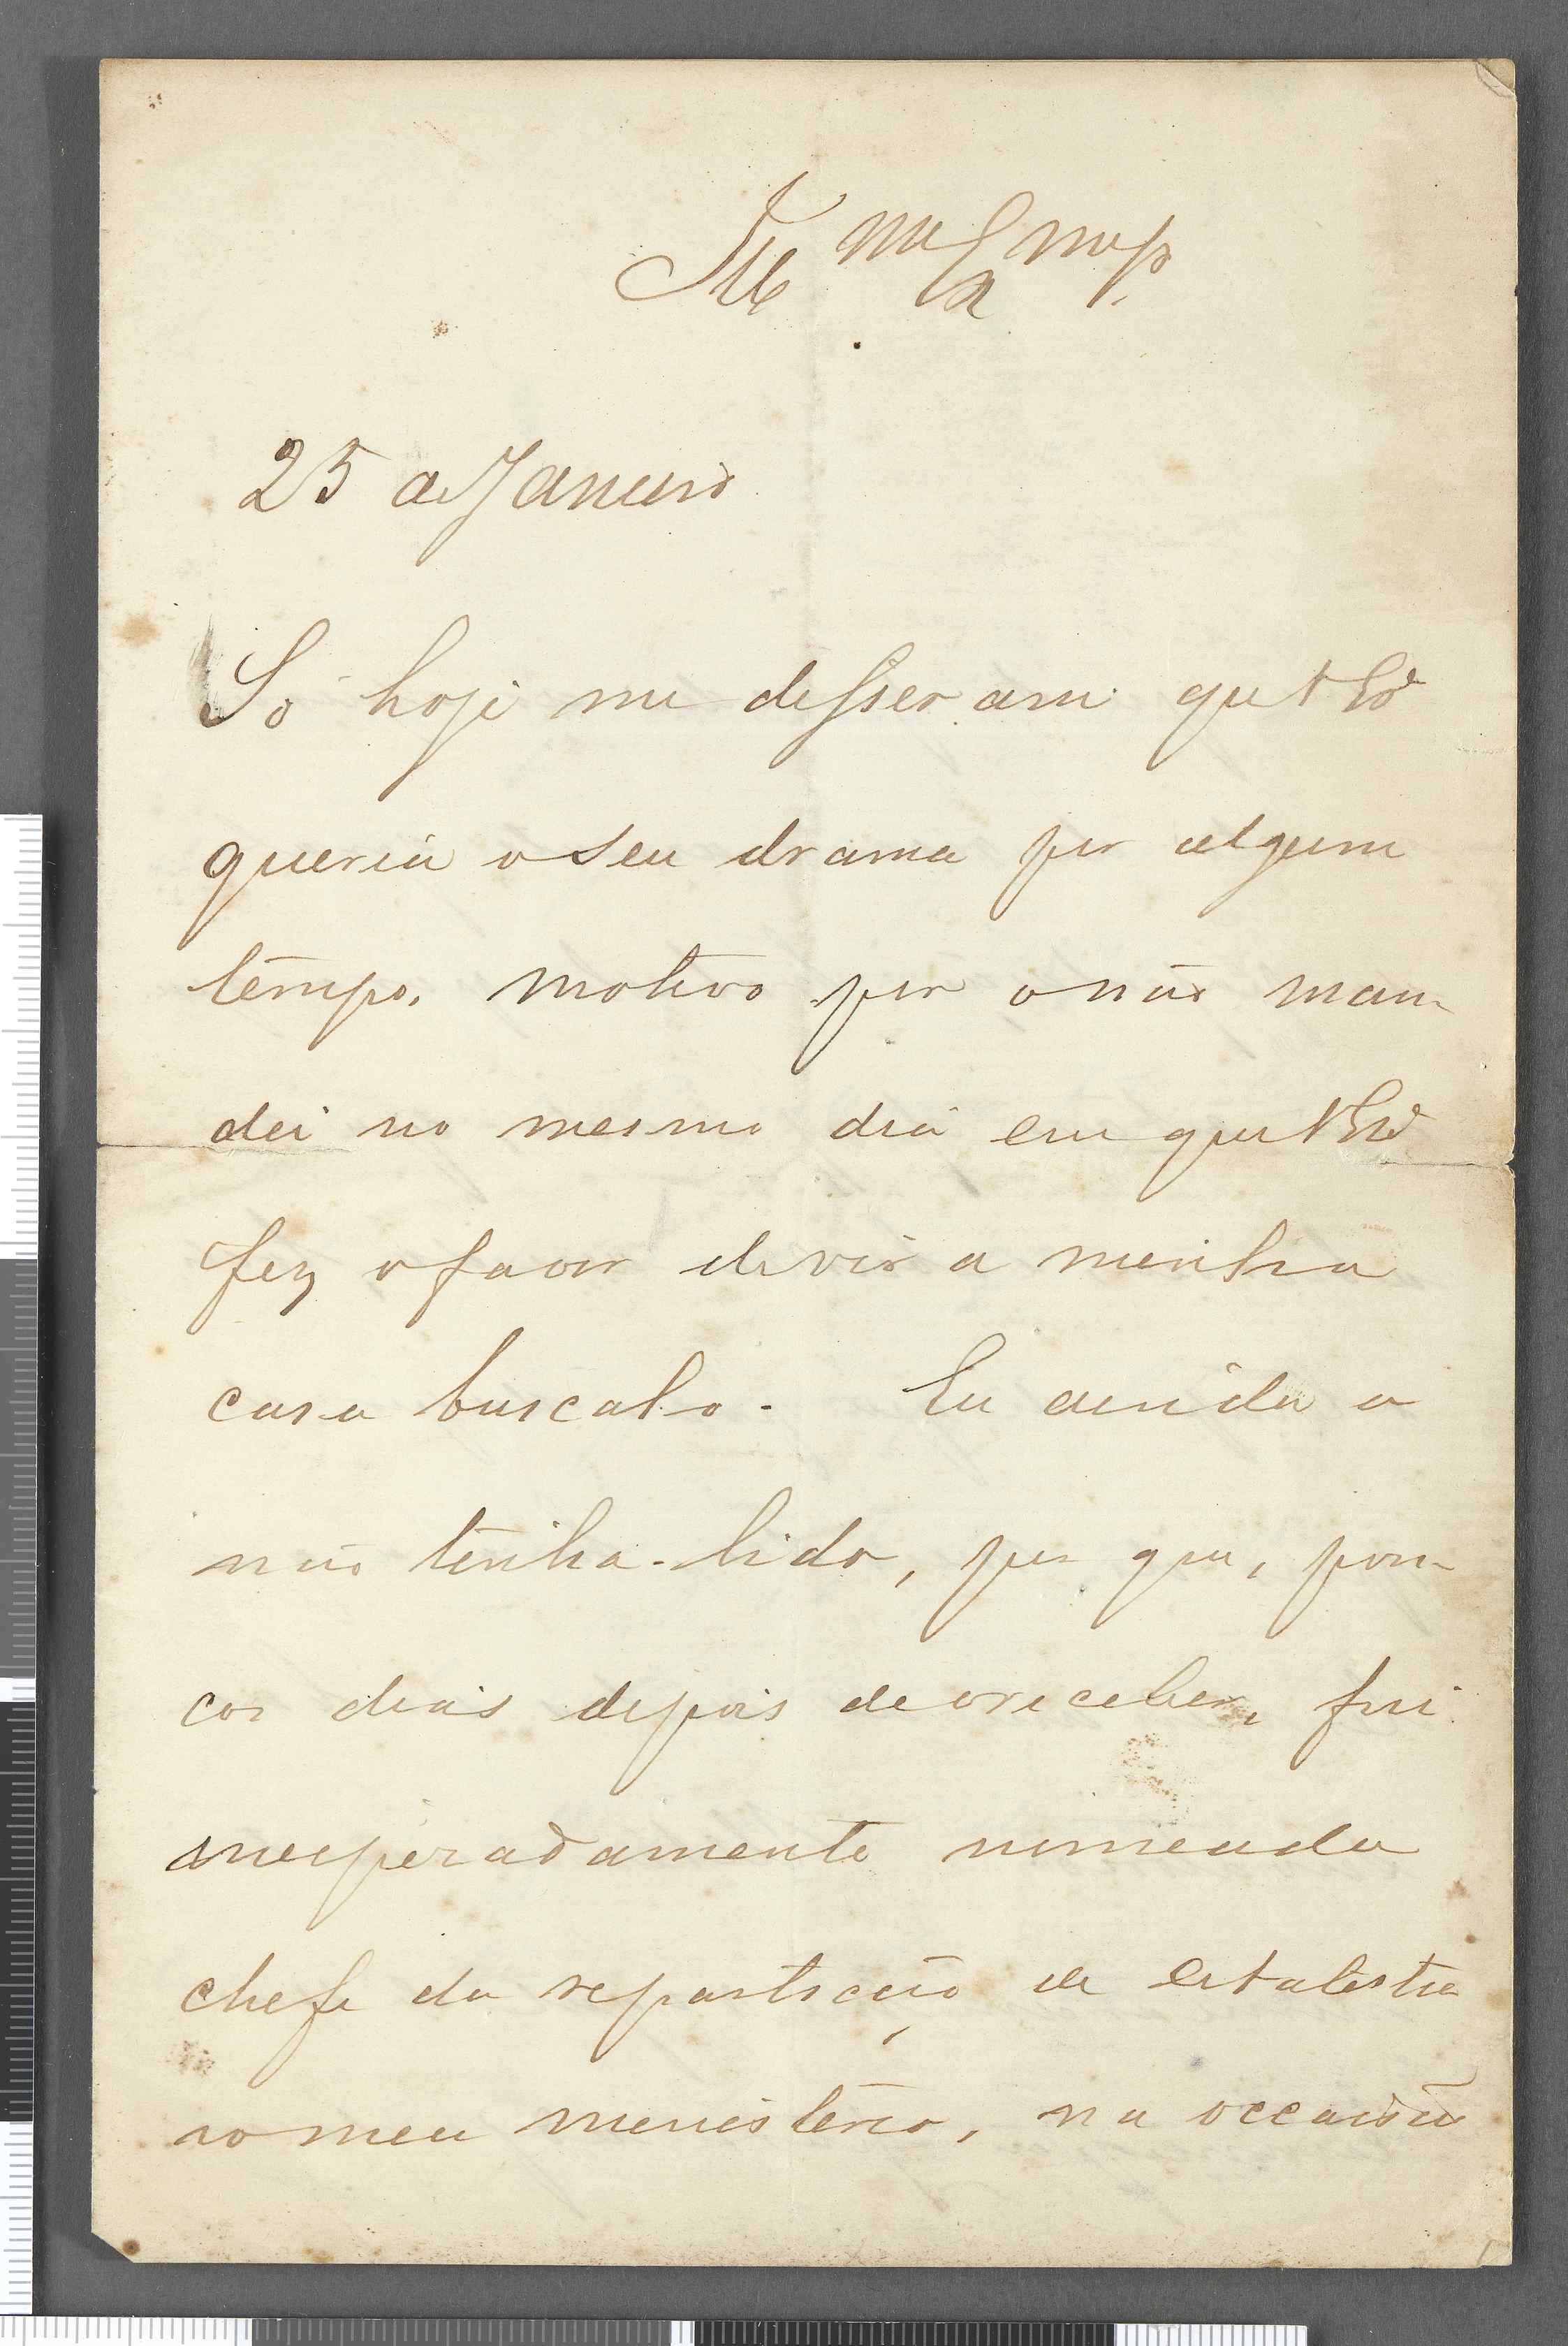 Ill.mo Ex.mo Sr.
25 de Janeiro
Só hoje me desseram que V Exª
queria o seu drama por algum
tempo, motivo por o não man-
dei no mesmo dia em que V Exª
fez o favor de vir a minha
casa buscalo. Eu ainda o
não tenha lido, por que, pou-
cos dias depois de o receber, fui
inesperadamente nomeado
chefe da repartição de estatistica
no meu menisterio, na occasião